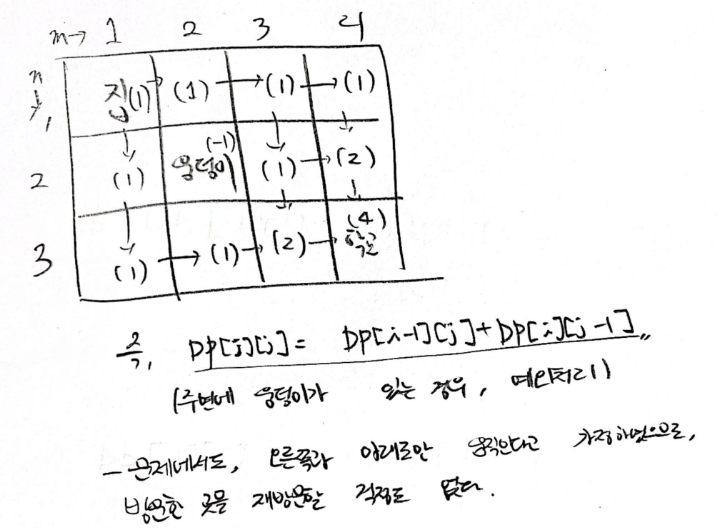 m→ 1 2 3 4
n
↓ 1 집(1) → (1) → (1) → (1)
2 (1) (-1) 웅덩이 (1) → (2)
3 (1) → (1) → (2) → (4) 학교
즉, DP[i][j] = DP[i-1][j] + DP[i][j-1]
(주변에 웅덩이가 있는 경우, 예외처리)
- 문제에서도, 오른쪽과 아래로만 움직인다고 가정하였으므로,
방문한 곳을 재방문할 걱정도 없다.